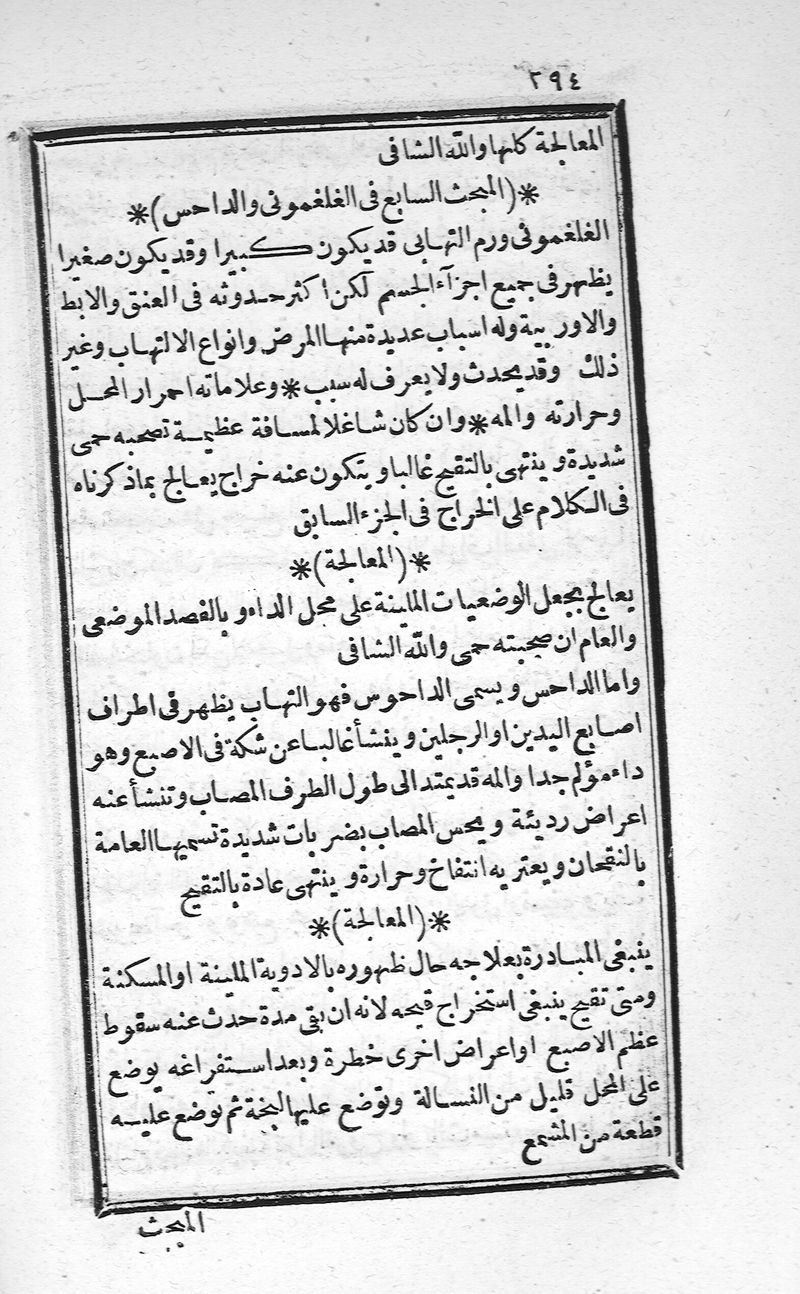 ٢٩٤
المعالجة كلها والله الشافى
*(المبحث السابع فى الغلغمونى والداحس)*
الغلغمونى ورم التهابى قد يكون كبيرا وقد يكون صغيرا
يظهر فى جميع اجزآء الجسم لكن اكثر حدوثه فى العنق والابط
والاوربية وله اسباب عديدة منها المرض وانواع الالتهاب وغير
ذلك وقد يحدث ولا يعرف له سبب * وعلاماته احمرار المحل
وحرارته والمه * وان كان شاغلا لمسافة عظيمة تصحبه حمى
شديدة وينتهى بالتقيح غالبا ويتكون عنه خراج يعالج بماذكرناه
فى الكلام على الخراج فى الجزء السابق
*(المعالجة)*
يعالج بجعل الوضعيات الملينة على محل الداء وبالفصد الموضعى
والعام ان صحبته حمى والله الشافى
واما الداحس ويسمى الداحوس فهو التهاب يظهر فى اطراف
اصابع اليدين او الرجلين وينشأ غالبا عن شكة فى الاصبع وهو
داء مؤلم جدا والمه قد يمتد الى طول الطرف المصاب وتنشأ عنه
اعراض رديئة ويحس المصاب بضربات شديدة تسميها العامة
بالنقحان ويعتريه انتفاخ وحرارة وينتهى عادة بالتقيح
*(المعالجة)*
ينبغى المبادرة بعلاجه حال ظهوره بالادوية الملينة او المسكنة
ومتى تقيح ينبغى استخراج قيحه لانه ان بقى مدة حدث عنه سقوط
عظم الاصبع او اعراض اخرى خطرة وبعد استفراغه يوضع
على المحل قليل من النسالة وتوضع عليها لبخة ثم توضع عليه
قطعة من المشمع
المبحث